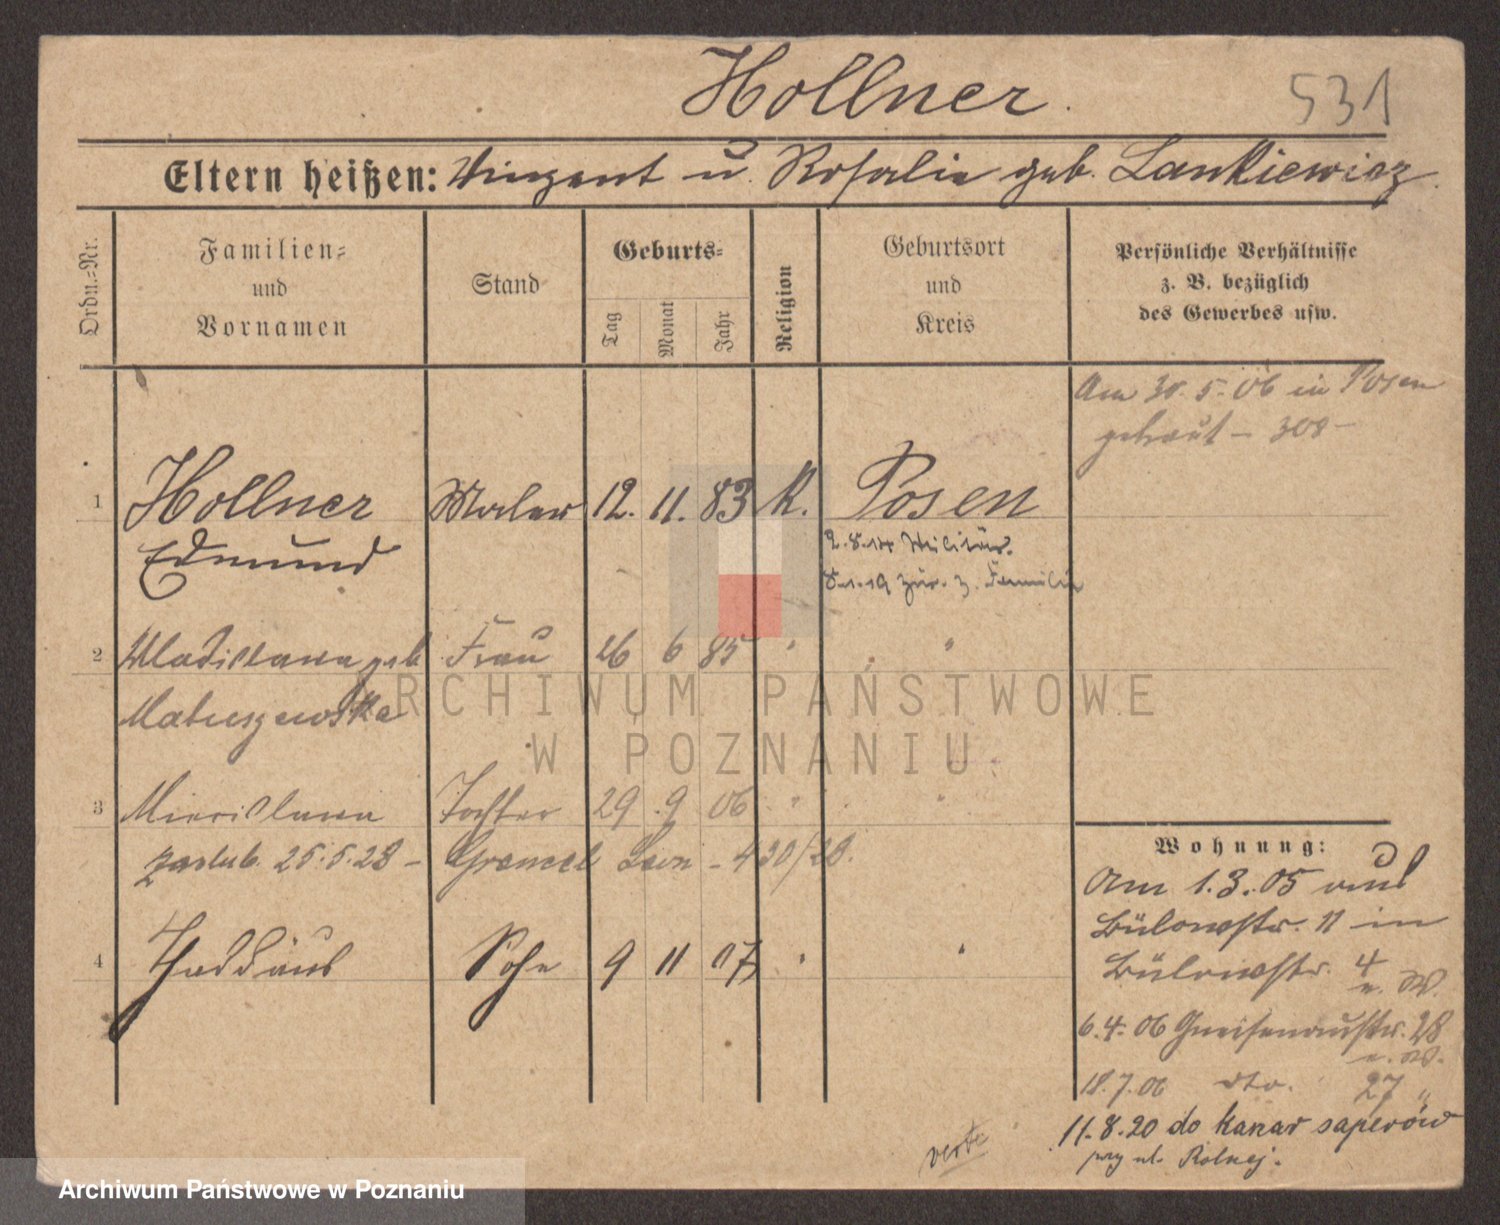 Hollner.
531
Eltern heißen: Vinzent u. Rosalie geb. Lankiewicz.
Ordn.-Nr.
Familien- und Vornamen
Stand
Geburts-
Tag
Monat
Jahr
Religion
Geburtsort und Kreis
Persönliche Verhältnisse
z. B. bezüglich
des Gewerbes usw.
Am 30.5.06 in Posen
getraut - 308 -
1 Hollner Maler 12. 11. 83 K. Posen
Edmund
2.8.14 Militär.
8.1.19 zur. z. Familie
2 Wladislawa geb. Frau 26 6 85 " "
Matuszewska
3 Miecislawa Tochter 29 . 9 06 " "
zaślub. 25.5.28 - Leon - 430/28.
4 Thaddäus Sohn 9 11 07 " "
Wohnung:
Am 1.3.05 aus
Bülowstr. 11 in
Bülowstr. 4
n. W.
6.4.06 Gneisenaustr. 28
n. W.
18.7.06 dto. 27 "
11.8.20 do kazar saperów
przy ul. Rolnej.
verte
ARCHIWUM PAŃSTWOWE
W POZNANIU
Archiwum Państwowe w Poznaniu